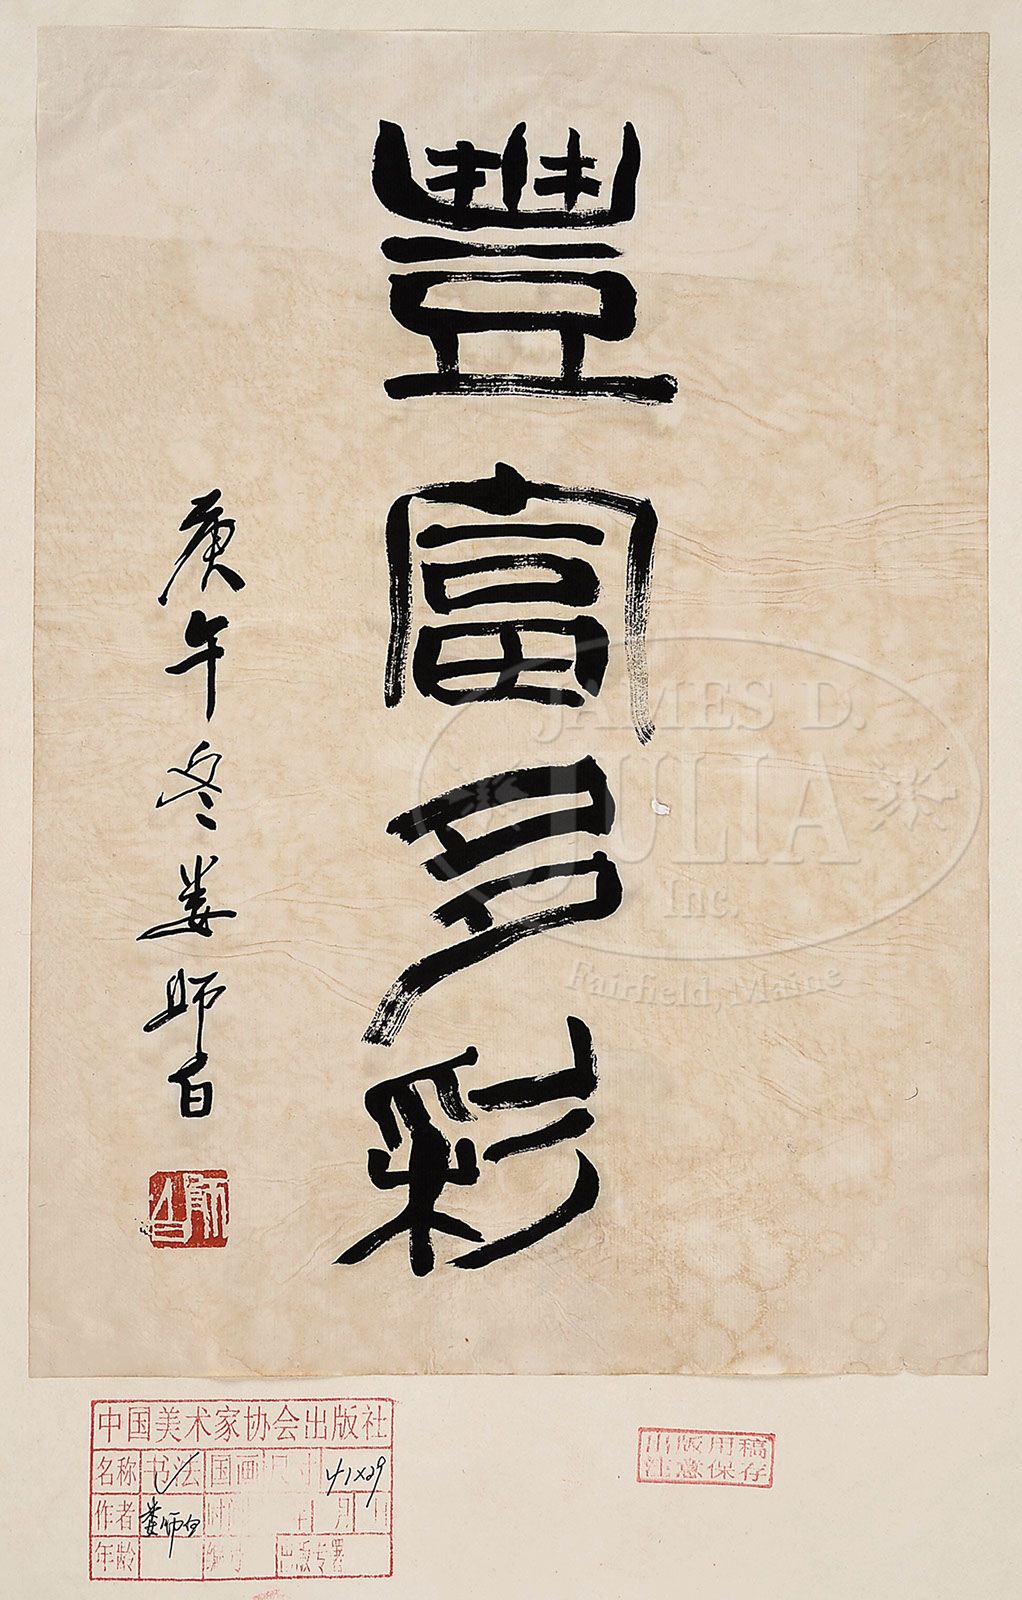 豐富多彩
庚午冬婁師白
師白
JAMES D.
JULIA
Inc.
Fairfield, Maine
中国美术家协会出版社
名称 书法 国画 尺寸 41×29
作者 娄师白 时间 年 月 日
年龄 编号 出版专署
出版用稿
注意保存